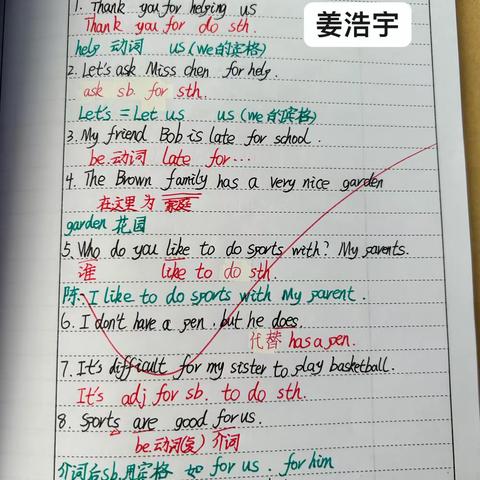 姜浩宇
1. Thank you for helping us
Thank you for do sth.
help 动词 us (we的宾格)
2. Let's ask Miss chen for help.
ask sb. for sth.
Let's = Let us us (we的宾格)
3. My friend Bob is late for school.
be 动词 late for…
4. The Brown family has a very nice garden
在这里为 家庭
garden 花园
5. Who do you like to do sports with? My parents.
谁 like to do sth.
陈: I like to do sports with My parent.
6. I don't have a pen. but he does.
代替 has a pen.
7. It's difficult for my sister to play basketball.
It's adj for sb. to do sth.
8. Sports are good for us.
be.动词(复) 介词
介词后sb.用宾格 如 for us. for him